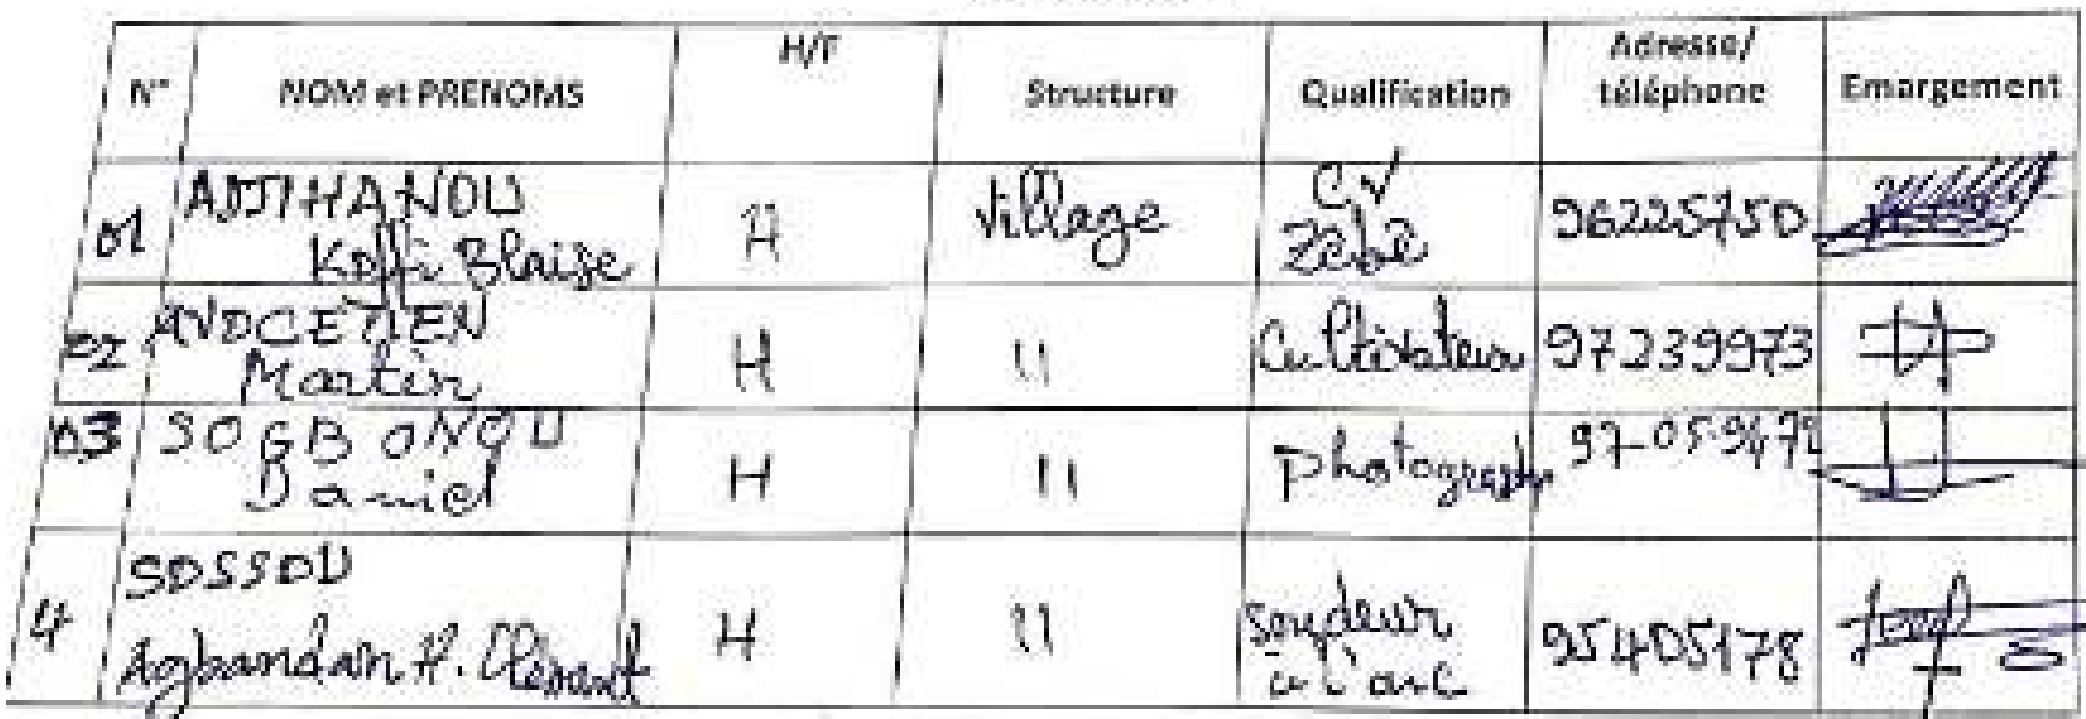 N° NOM et PRENOMS H/F Structure Qualification Adresse/ téléphone Emargement
01 ADJIHANOU Koffi Blaise H Village CV Zèbè 96225750
02 AVOCETIEN Martin H 11 Cultivateur 97239973
03 SOGBONOU Daniel H 11 Photograph 97-05-9472
4 SOSSOU Agbandan H. Clément H 11 Soudeur à l'arc 95405178